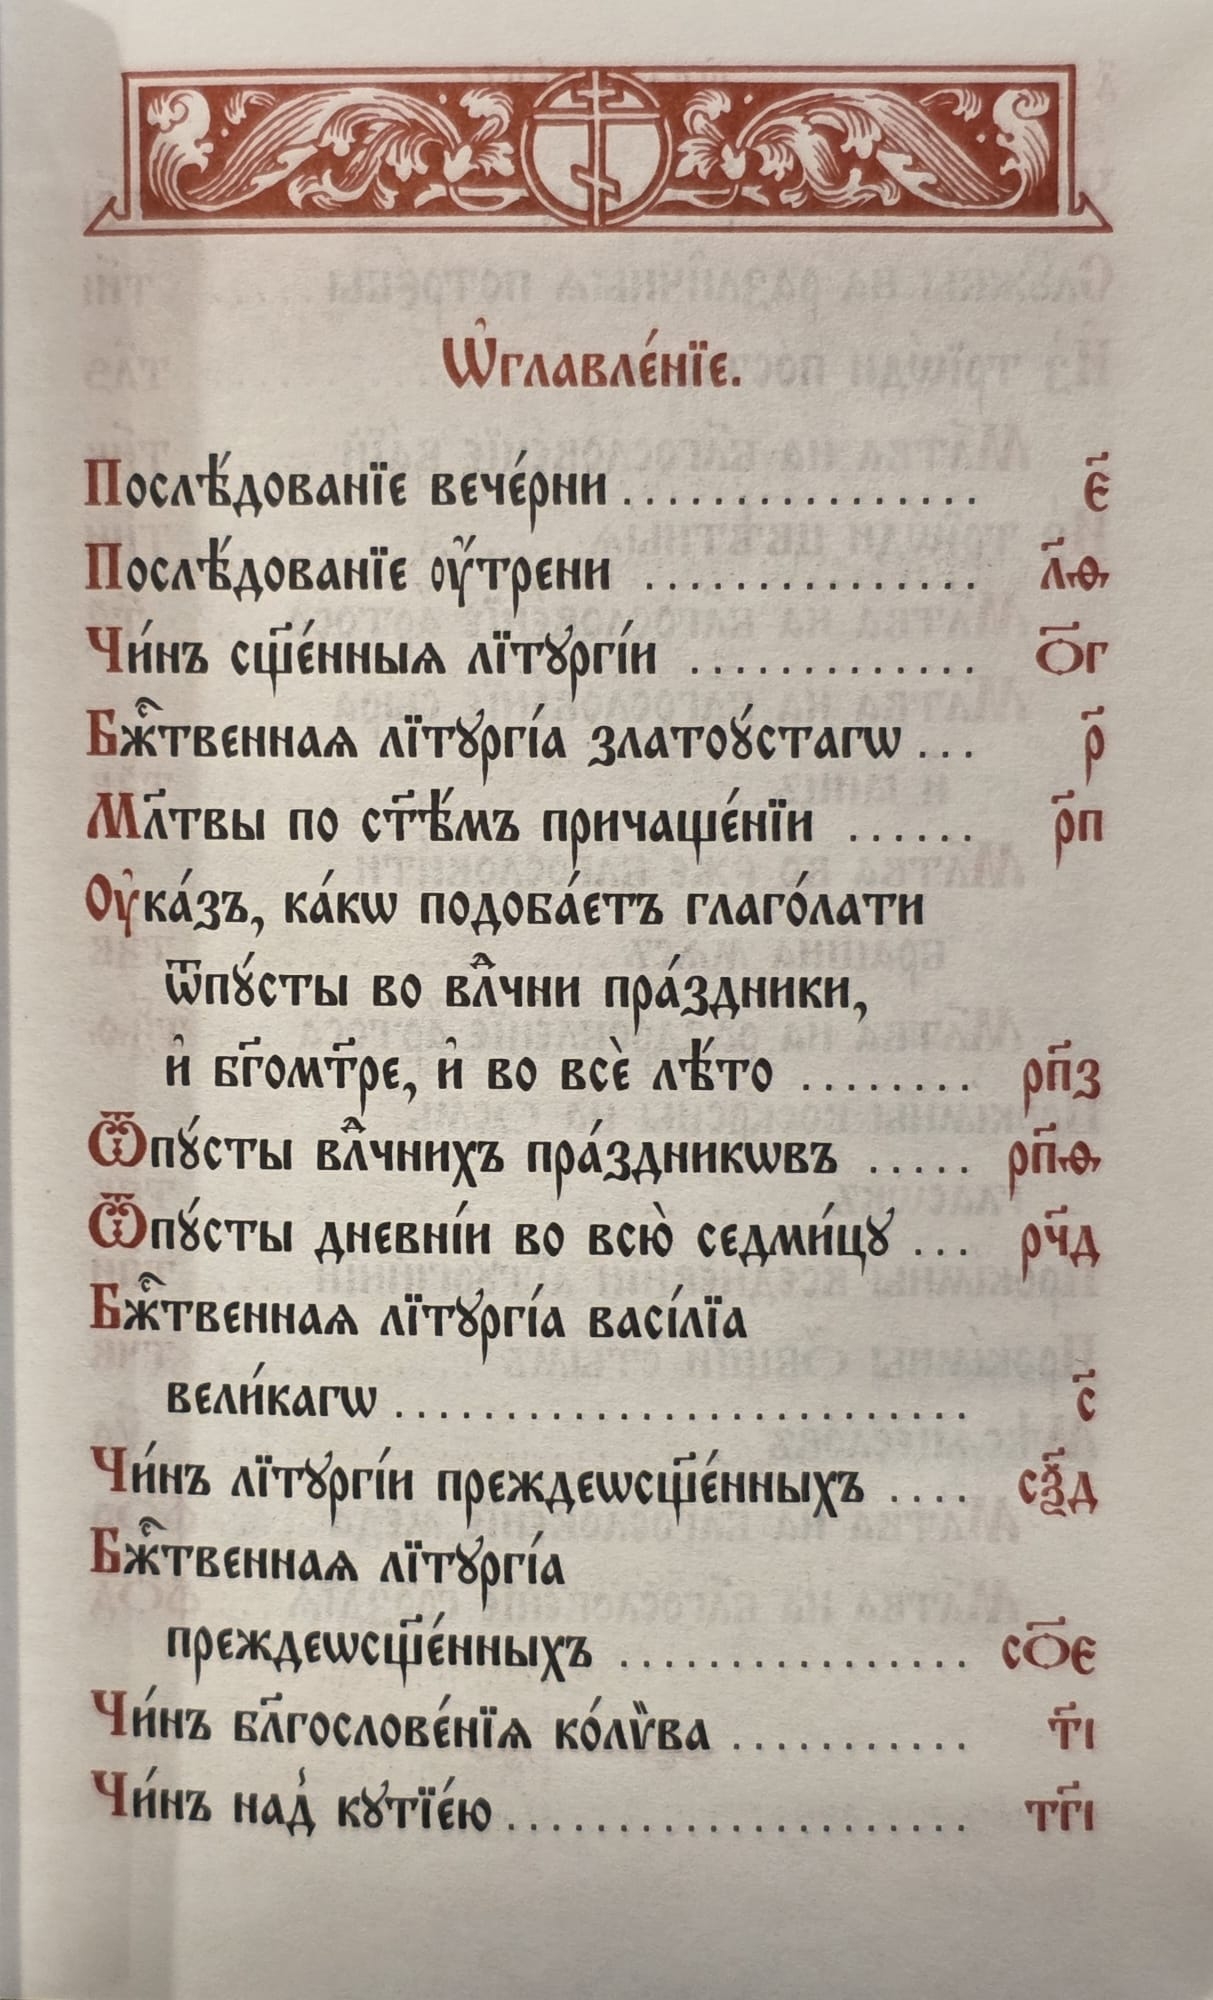 Ѡ҆главле́нїе.
Послѣ́дованїе вече́рни . . . . . . . . . . . . . . . . є҃
Послѣ́дованїе ᲂу҆́трени . . . . . . . . . . . . . . . л҃ѳ
Чи́нъ сщ҃е́нныѧ лїтꙋргі́и . . . . . . . . . . . . . ѻ҃г
Бж҇твеннаѧ лїтꙋргі́а златоꙋ́стагѡ . . . р҃
Мл҃твы по ст҃ѣ́мъ причаще́нїи . . . . . . р҃п
Оу҆ка́зъ, ка́кѡ подоба́етъ глаго́лати
ѿпꙋ́сты во влⷣчни пра́здники,
и҆ бг҃омт҃ре, и҆ во всѐ лѣ́то . . . . . . . . рп҃з
Ѿпꙋ́сты влⷣчнихъ пра́здникѡвъ . . . . . рп҃ѳ
Ѿпꙋ́сты дневні́и во всю̀ седми́цꙋ . . . рч҃д
Бж҇твеннаѧ лїтꙋргі́а васі́лїа
вели́кагѡ . . . . . . . . . . . . . . . . . . . . . . . . . . с҃
Чи́нъ лїтꙋргі́и преждеѡсщ҃е́нныхъ . . . . сѯ҃д
Бж҇твеннаѧ лїтꙋргі́а
преждеѡсщ҃е́нныхъ . . . . . . . . . . . . . . . . сѻ҃є
Чи́нъ бл҃гослове́нїѧ ко́лѷва . . . . . . . . . . . т҃і
Чи́нъ над̾ кꙋтїе́ю . . . . . . . . . . . . . . . . . . . . . тг҃і